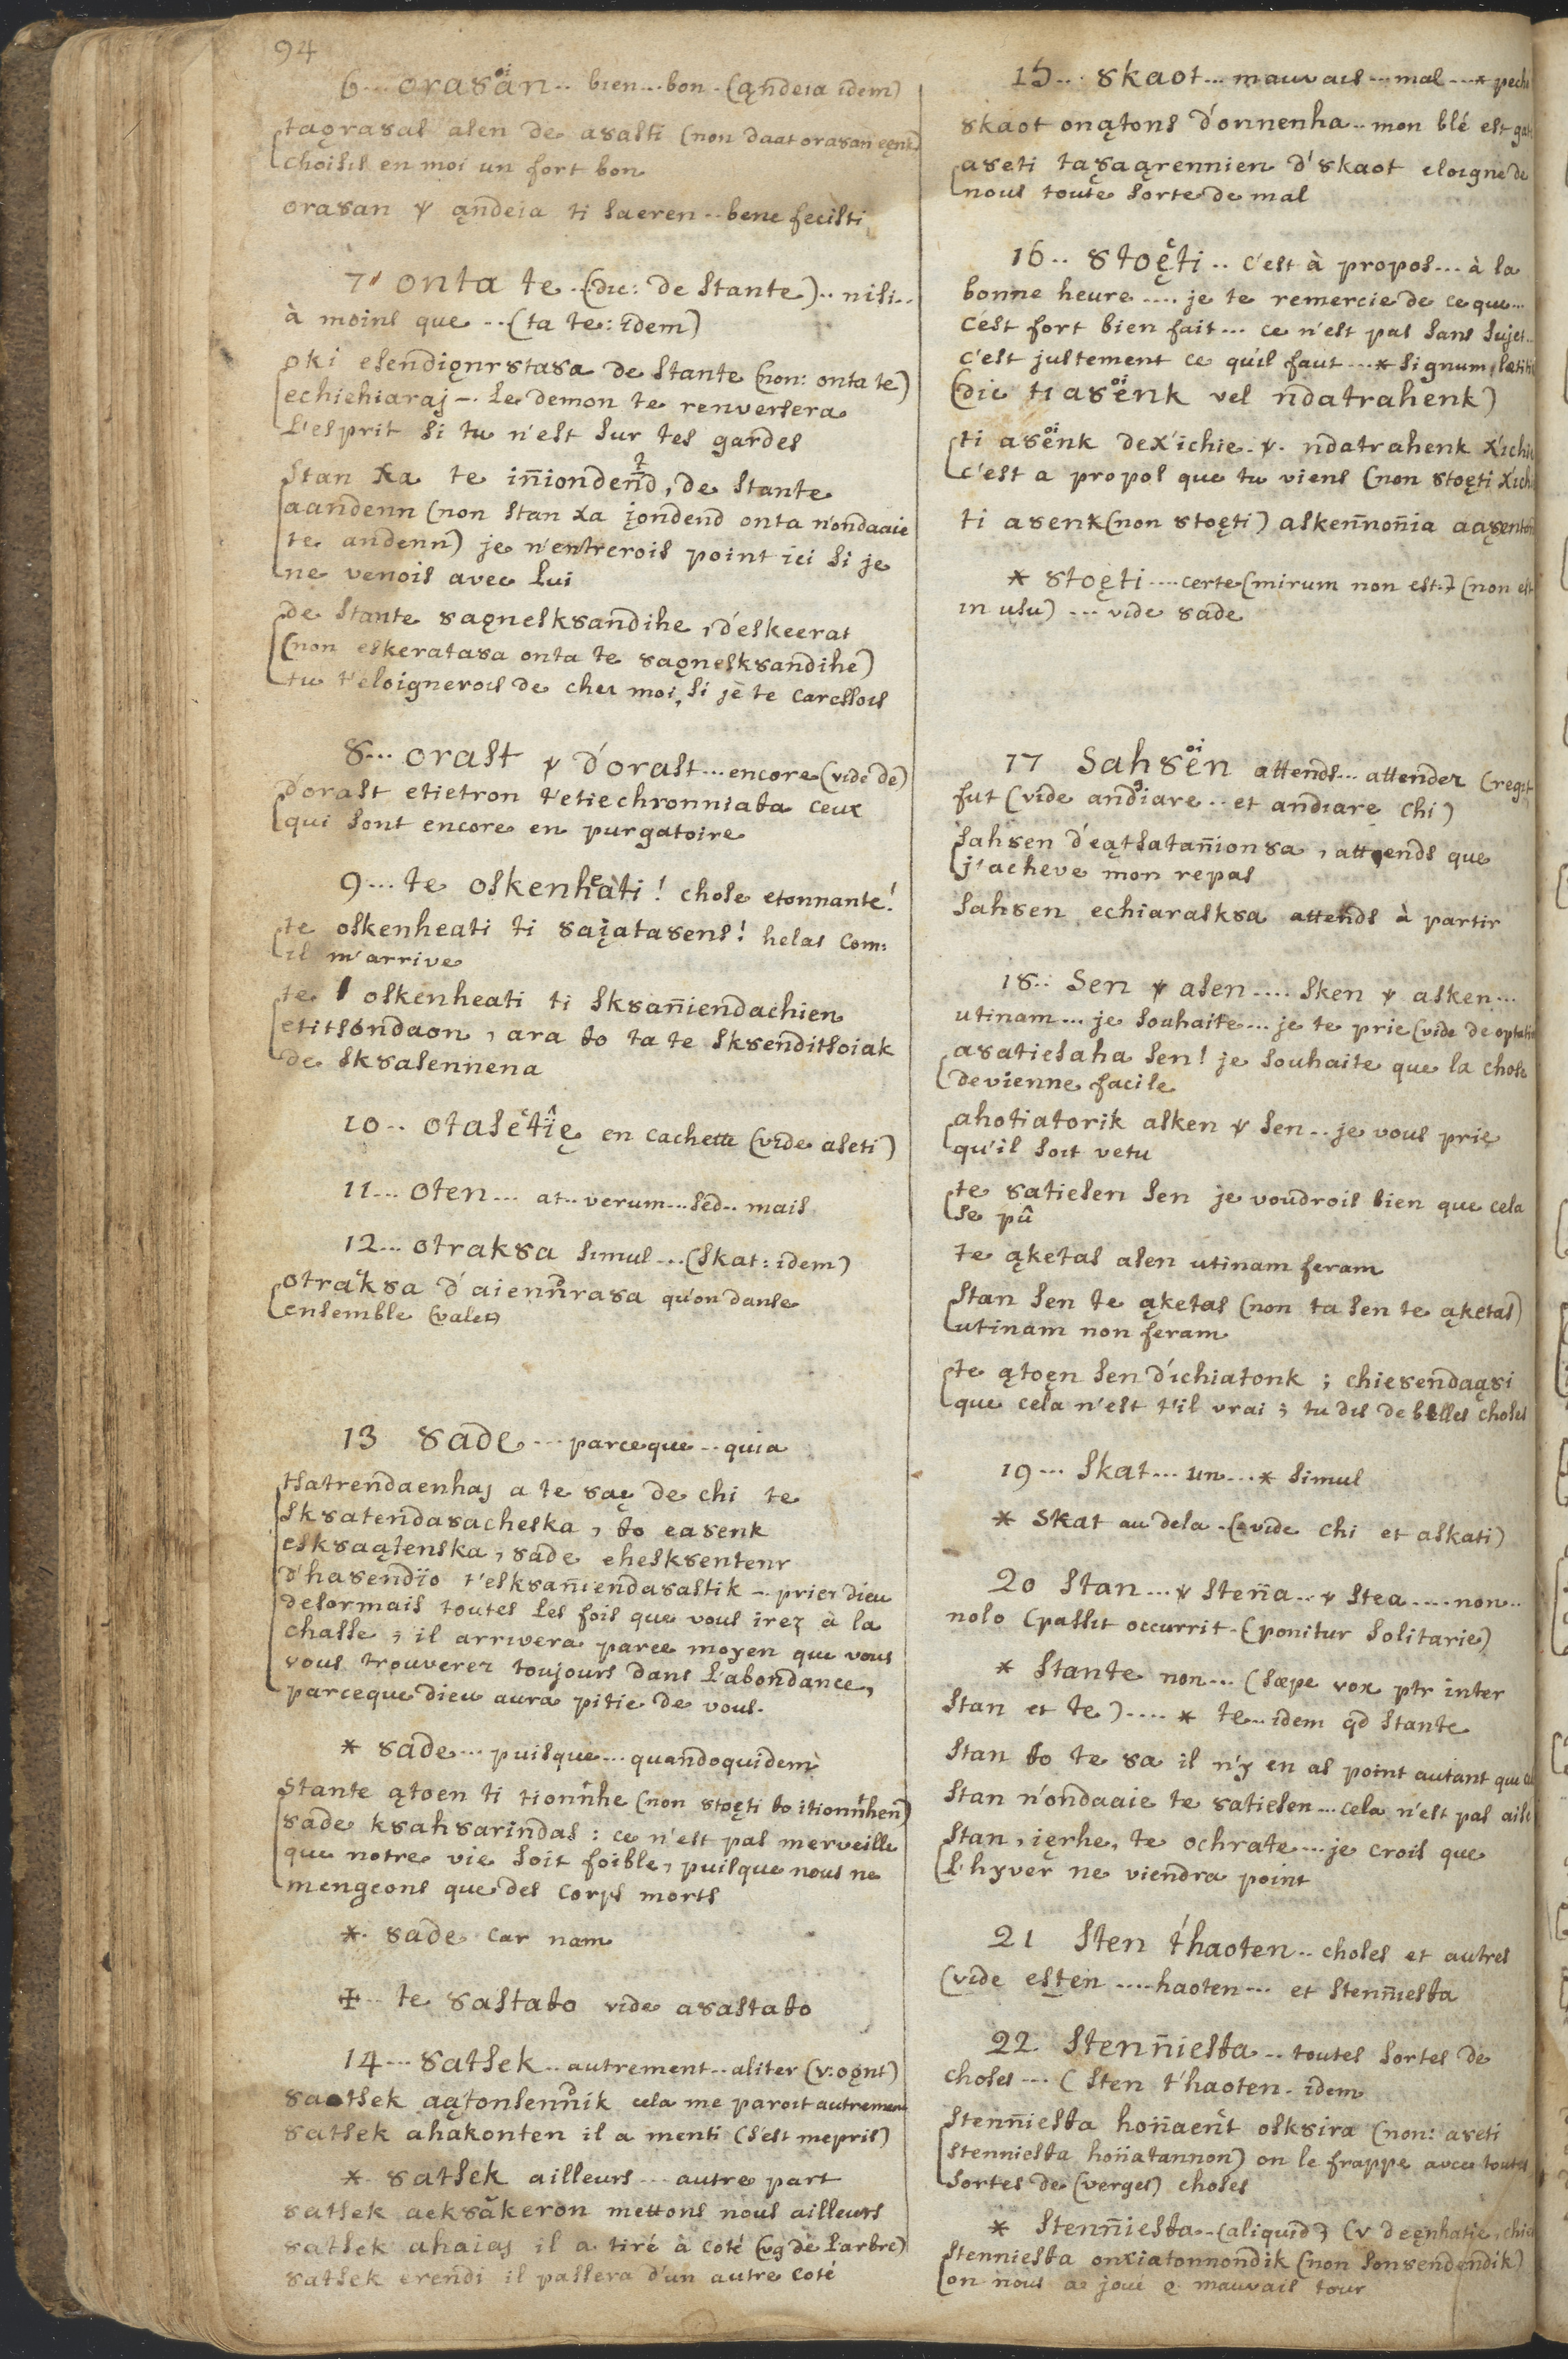 94
6... oraȣan.. bien... bon. (ąndeia idem)
taǫraȣas asen de aȣasti (non daat oraȣan eęnk)
choisis en moi un fort bon
oraȣan ɤ ąndeia ti saeren.. bene fecisti
7 onta te.. (dic: de stante).. nisi..
à moins que... (ta te: idem)
oki esendiǫnrȣtaȣa de stante (non: onta te)
echiehiaraj —. Le demon te renversera
L'esprit si tu n'est sur tes gardes
Stan ẋa te iñiondend, de stante
aandenn (non stan ẋa įondend onta n'ondaaie
te andenn) je n'entrerois point ici si je
ne venois avec lui
de Stante ȣaǫnesksandihe, d'eskeerat
(non eskerataȣa onta te ȣaǫnesksandihe)
tu t'eloignerois de chez moi, si je te caressois
8... orast ɤ d'orast... encore (vide de)
d'orast etietron t'etiechronniaƀa ceux
qui sont encore en purgatoire
9... te oskenheati! chose etonnante!
te oskenheati ti ȣaįataȣens! helas com:
il m'arrive
te oskenheati ti skȣañiendachien
etitsondaon, ara ƀo ta te skȣenditsoiak
de skȣasennena
10.. otasetïę en cachette (vide aseti)
11... oten... at.. verum... sed.. mais
12... otrakȣa simul... (skat: idem)
otrakȣa d'aiennraȣa qu'on danse
ensemble (valet)
13 ȣade... parceque.. quia
tsatrendaenhaj a te ȣaę de chi te
skȣatendaȣacheska, ƀo eaȣenk
eskȣaątenska, ȣade eheskȣentenr
d'haȣendïo t'eskȣañiendaȣastik —. prier dieu
desormais toutes les fois que vous irez à la
chasse; il arrivera parce moyen que vous
vous trouverez toujours dans l'abondance,
parceque dieu aura pitie de vous.
* ȣade... puisque... quandoquidem
Stante ątoen ti tionnhe (non ȣtoęti ƀo itionnhen)
ȣade kȣahȣarindas: ce n'est pas merveille
que notre vie soit foible, puisque nous ne
mengeons que des corps morts
* ȣade car nam
✠... te ȣastaƀo vide aȣastaƀo
14... ȣatsek.. autrement.. aliter (v: oǫnt)
ȣatsek aątonsennik cela me paroit autrement
ȣatsek ahakonten il a menti (s'est mepris)
* ȣatsek ailleurs... autre part
ȣatsek aekȣakeron mettons nous ailleurs
ȣatsek ahaiaj il a tiré à coté (vg de l'arbre)
ȣatsek erendi il passera d'un autre coté
15... skaot... mauvais... mal... * pech
skaot onątons d'onnenha.. mon blé est
aȣeti taȣaąrennien d'skaot eloigne de
nous toute sorte de mal
16.. ȣtoęti.. c'est à propos... à la
bonne heure.... je te remercie de ce que...
c'est fort bien fait... ce n'est pas sans sujet..
c'est justement ce qu'il faut... * signum lætiti
(dic ti aȣenk vel ñdatrahenk)
ti aȣenk dex'ichie. ɤ. ndatrahenk
c'est a propos que tu viens (non ȣtoęti
ti aȣenk (non ȣtoęti) askeñnoñia
* ȣtoęti.... certe (mirum non est.) (non est
in usu)... vide ȣade
17 Sahȣen attends... attendez (regit
fut (vide andiare.. et andiare chi)
Sahȣen d'eątsatañionȣa, attends que
j'acheve mon repas
Sahȣen echiaraskȣa attends à partir
18.. Sen ɤ asen.... sken ɤ asken...
utinam... je souhaite... je te prie (vide de
aȣatiesaha sen! je souhaite que la chose
devienne facile
ahotiatorik asken ɤ sen.. je vous prie
qu'il soit vetu
te ȣatiesen sen je voudrois bien que cela
se pû
te ąketas asen utinam feram
Stan sen te ąketas (non ta sen te ąketas)
utinam non feram
te ątoęn sen d'ichiatonk; chieȣendaąȣi
que cela n'est t'il vrai; tu dis de belles choses
19... Skat... un... * simul
* skat au dela. (vide chi et askati)
20 Stan... ɤ steña.. ɤ stea.... non..
nolo (passit occurrit. (ponitur solitarie)
* Stante non... (sæpe vox ptr inter
Stan et te).... * te.. idem qd stante
Stan ƀo te ȣa il n'y en as point autant que
Stan n'ondaaie te ȣatiesen... cela n'est pas
Stan, ięrhe, te ochrate... je crois que
L'hyver ne viendra point
21 Sten t'haoten.. choses et autres
(vide esten.... haoten... et stenñiesƀa
22 Stenñiesƀa.. toutes sortes de
choses... (sten t'haoten. idem
Stenñiesƀa hoñaent oskȣira (non: aȣeti
stenniesƀa hoñatannon) on le frappe avec toutes
sortes de (verges) choses
* Stenñiesƀa.. (aliquid) (v deęnhatie,
stenniesƀa onxiatonnondik (non sonȣendendik)
on nous a joué e mauvais tour